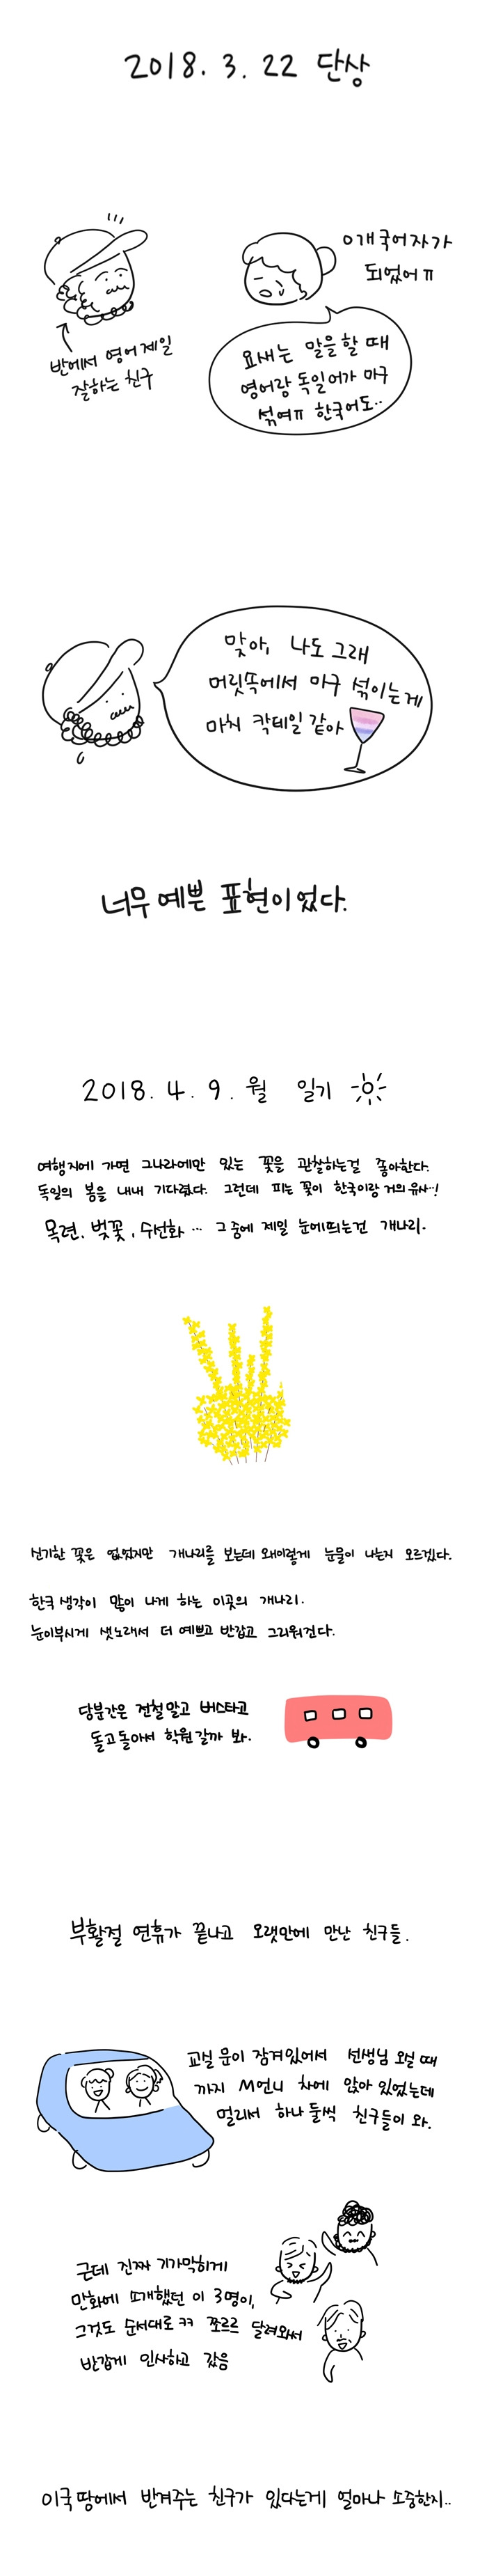 2018. 3. 22 단상
반에서 영어 제일
잘하는 친구
0개국어자가
되었어ㅠ
요새는 말을 할 때
영어랑 독일어가 마구
섞여ㅠ 한국어도..
맞아, 나도 그래
머릿속에서 마구 섞이는게
마치 칵테일 같아
너무 예쁜 표현이었다.
2018. 4. 9. 월 일기
여행지에 가면 그나라에만 있는 꽃을 관찰하는걸 좋아한다.
독일의 봄을 내내 기다렸다. 그런데 피는 꽃이 한국이랑 거의 유사...!
목련, 벚꽃, 수선화 ... 그 중에 제일 눈에띄는건 개나리.
신기한 꽃은 없었지만 개나리를 보는데 왜이렇게 눈물이 나는지 모르겠다.
한국 생각이 많이 나게 하는 이곳의 개나리.
눈이부시게 샛노래서 더 예쁘고 반갑고 그리워진다.
당분간은 전철말고 버스타고
돌고돌아서 학원갈까 봐.
부활절 연휴가 끝나고 오랫만에 만난 친구들.
교실 문이 잠겨있어서 선생님 오실 때
까지 M언니 차에 앉아 있었는데
멀리서 하나 둘씩 친구들이 와.
근데 진짜 기가막히게
만화에 소개했던 이 3명이,
그것도 순서대로 ㅋㅋ 쪼르르 달려와서
반갑게 인사하고 갔음
이국 땅에서 반겨주는 친구가 있다는게 얼마나 소중한지..